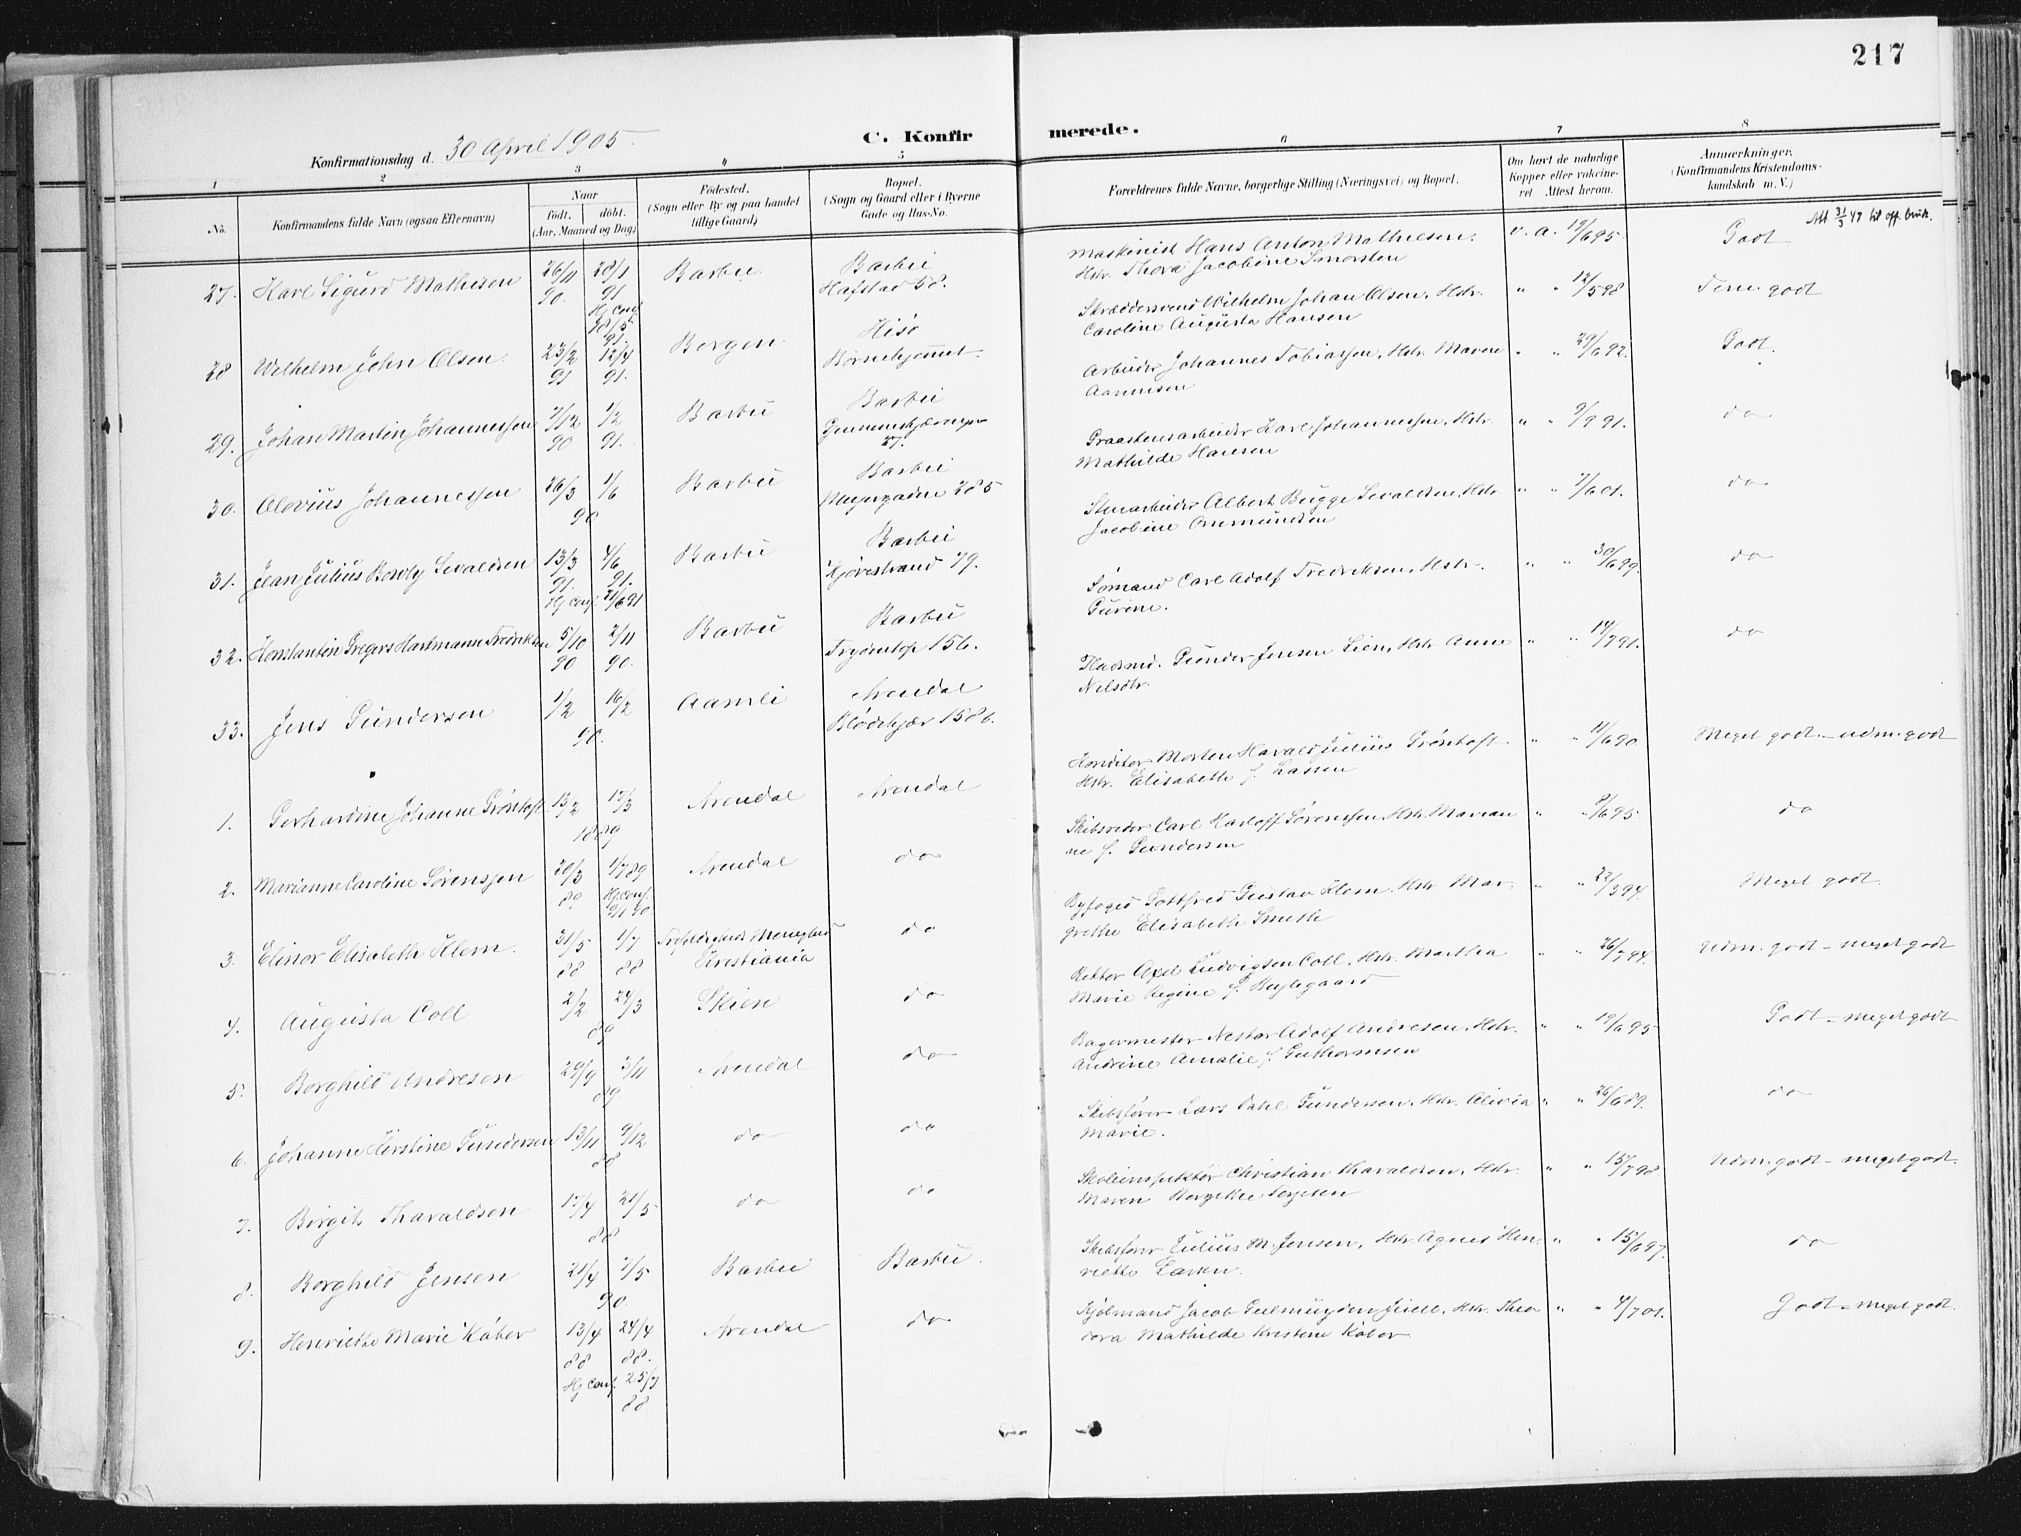 217
Konfirmationsdag d. 30 April 1905
C. Konfirmerede.
1 2 3 4 5 6 7 8
No.
Konfirmandens fulde Navn (ogsaa Efternavn)
Naar født. døbt. (Aar, Maaned og Dag)
Fødested. (Sogn eller By og paa Landet tillige Gaard)
Bopæl. (Sogn og Gaard eller i Byerne Gade og Hus-No.
Forældrenes fulde Navne, borgerlige Stilling (Næringsvei) og Bopæl.
Om havt de naturlige Kopper eller vaccineret Attest herom.
Anmærkninger. (Konfirmandens Kristendomskundskab m. V.)
27. Karl Sigurd Mathisen 26/11 90. 28/1 91 Hj conf 18/5 91. Barbu Barbu Hafstad 58. Maskinist Hans Anton Mathiesen. Hstr. Thora Jacobine Smorsten v. a. 19/6 95 Godt Att 31/3 47 til off. bruk.
28 Wilhelm John Olsen 23/2 91 12/4 91. Bergen Hisø Børnehjemmet. Skræddersvend Wilhelm Johan Olsen, Hstr. Caroline Augusta Hansen " " 12/5 98 Tem. godt
29. Johan Martin Johannessen 7/12 90 1/2 91. Barbu Barbu 27. Arbeider Johannes Tobiassen, Hstr. Maren Aanensen " " 29/6 92. Godt.
30. Olevius Johannessen 26/3 1/6 90 Barbu Barbu Meyergaden 285 Graastensarbeider Karl Johannessen, Hstr. Mathilde Hansen " " 9/9 91. do
31. Jean Julius Bowly Sevaldsen 13/3 91. 4/6 91. Hj conf. 21/6 91 Barbu Barbu Kjørrestrand 79. Stenarbeider Albert Bugge Sevaldsen, Hstr. Jacobine Omundsen " " 7/6 01. do
32. Konstantin Gregers Hartmann Fredriksen 5/10 90 2/11 90. Barbu Barbu Frydentop 156. Sømand Carl Adolf Fredriksen, Hstr. Gurine. " " 30/6 99. do
33. Jens Gundersen 1/2 16/2 90. Aamli Arendal Blødekjær 1586. Pladsmd. Gunder Jensen Lien, Hstr Anne Nilsdtr. " " 14/7 91. do
1. Gerhardine Johanne Grøsthoft 13/2 17/3 1889 Arendal Arendal Konditor Morten Harald Julius Grønhoft Hstr. Elisabeth f. Lassen " " 11/6 90 Meget godt - udm. godt
2. Marianne Caroline Sørenssen 20/3 89 1/7 89 Hj. conf. Arendal do Skibsreder Carl Harloff Sørenssen, Hstr. Marianne f. Gundersen " " 8/6 95 do
3. Elinor Elisabeth Klem. 31/5 88 1/7 88 Kristiania do Byfoged Gottfred Gustav Klem, Hstr Margrethe Elisabeth Smith " " 22/3 94. Meget godt.
4. Augusta Coll 2/2 24/3 89 Skien do Rektor Axel Ludvigsen Coll, Hstr. Martha Marie Regine f. Buglegaard " " 26/7 94. Udm. godt - meget godt
5. Borghild Andresen 29/9 3/11 89. Arendal do Bagermester Nestor Adolf Andresen, Hstr. Andrine Amalie f. Guthormsen " " 19/6 95 Godt - meget godt
6. Johanne Kirstine Gundersen 13/11 9/12 88 do do Skibsfører Lars Dahl Gundersen, Hstr. Olivia Marie. " " 26/6 89. do
7. Birgit Tharaldsen 17/4 21/5 88 do do Skoleinspektør Christian Tharaldsen, Hstr. Maren Borgithe Terjesen " " 15/7 98 Udm. godt - meget godt.
8. Borghild Jensen 21/4 7/5 90. Barbu Barbu. Skibsfører Julius M. Jensen, Hstr. Agnes Henriette Larsen. " " 15/6 97. do
9. Henriette Marie Køber 13/4 88 24/4 88. Hj conf. 25/7 88 Arendal do Kjølmand Jacob Gulmuyden Juell, Hstr. Theodora Mathilde Kristene Køber " " 4/7 01. Godt - meget godt.